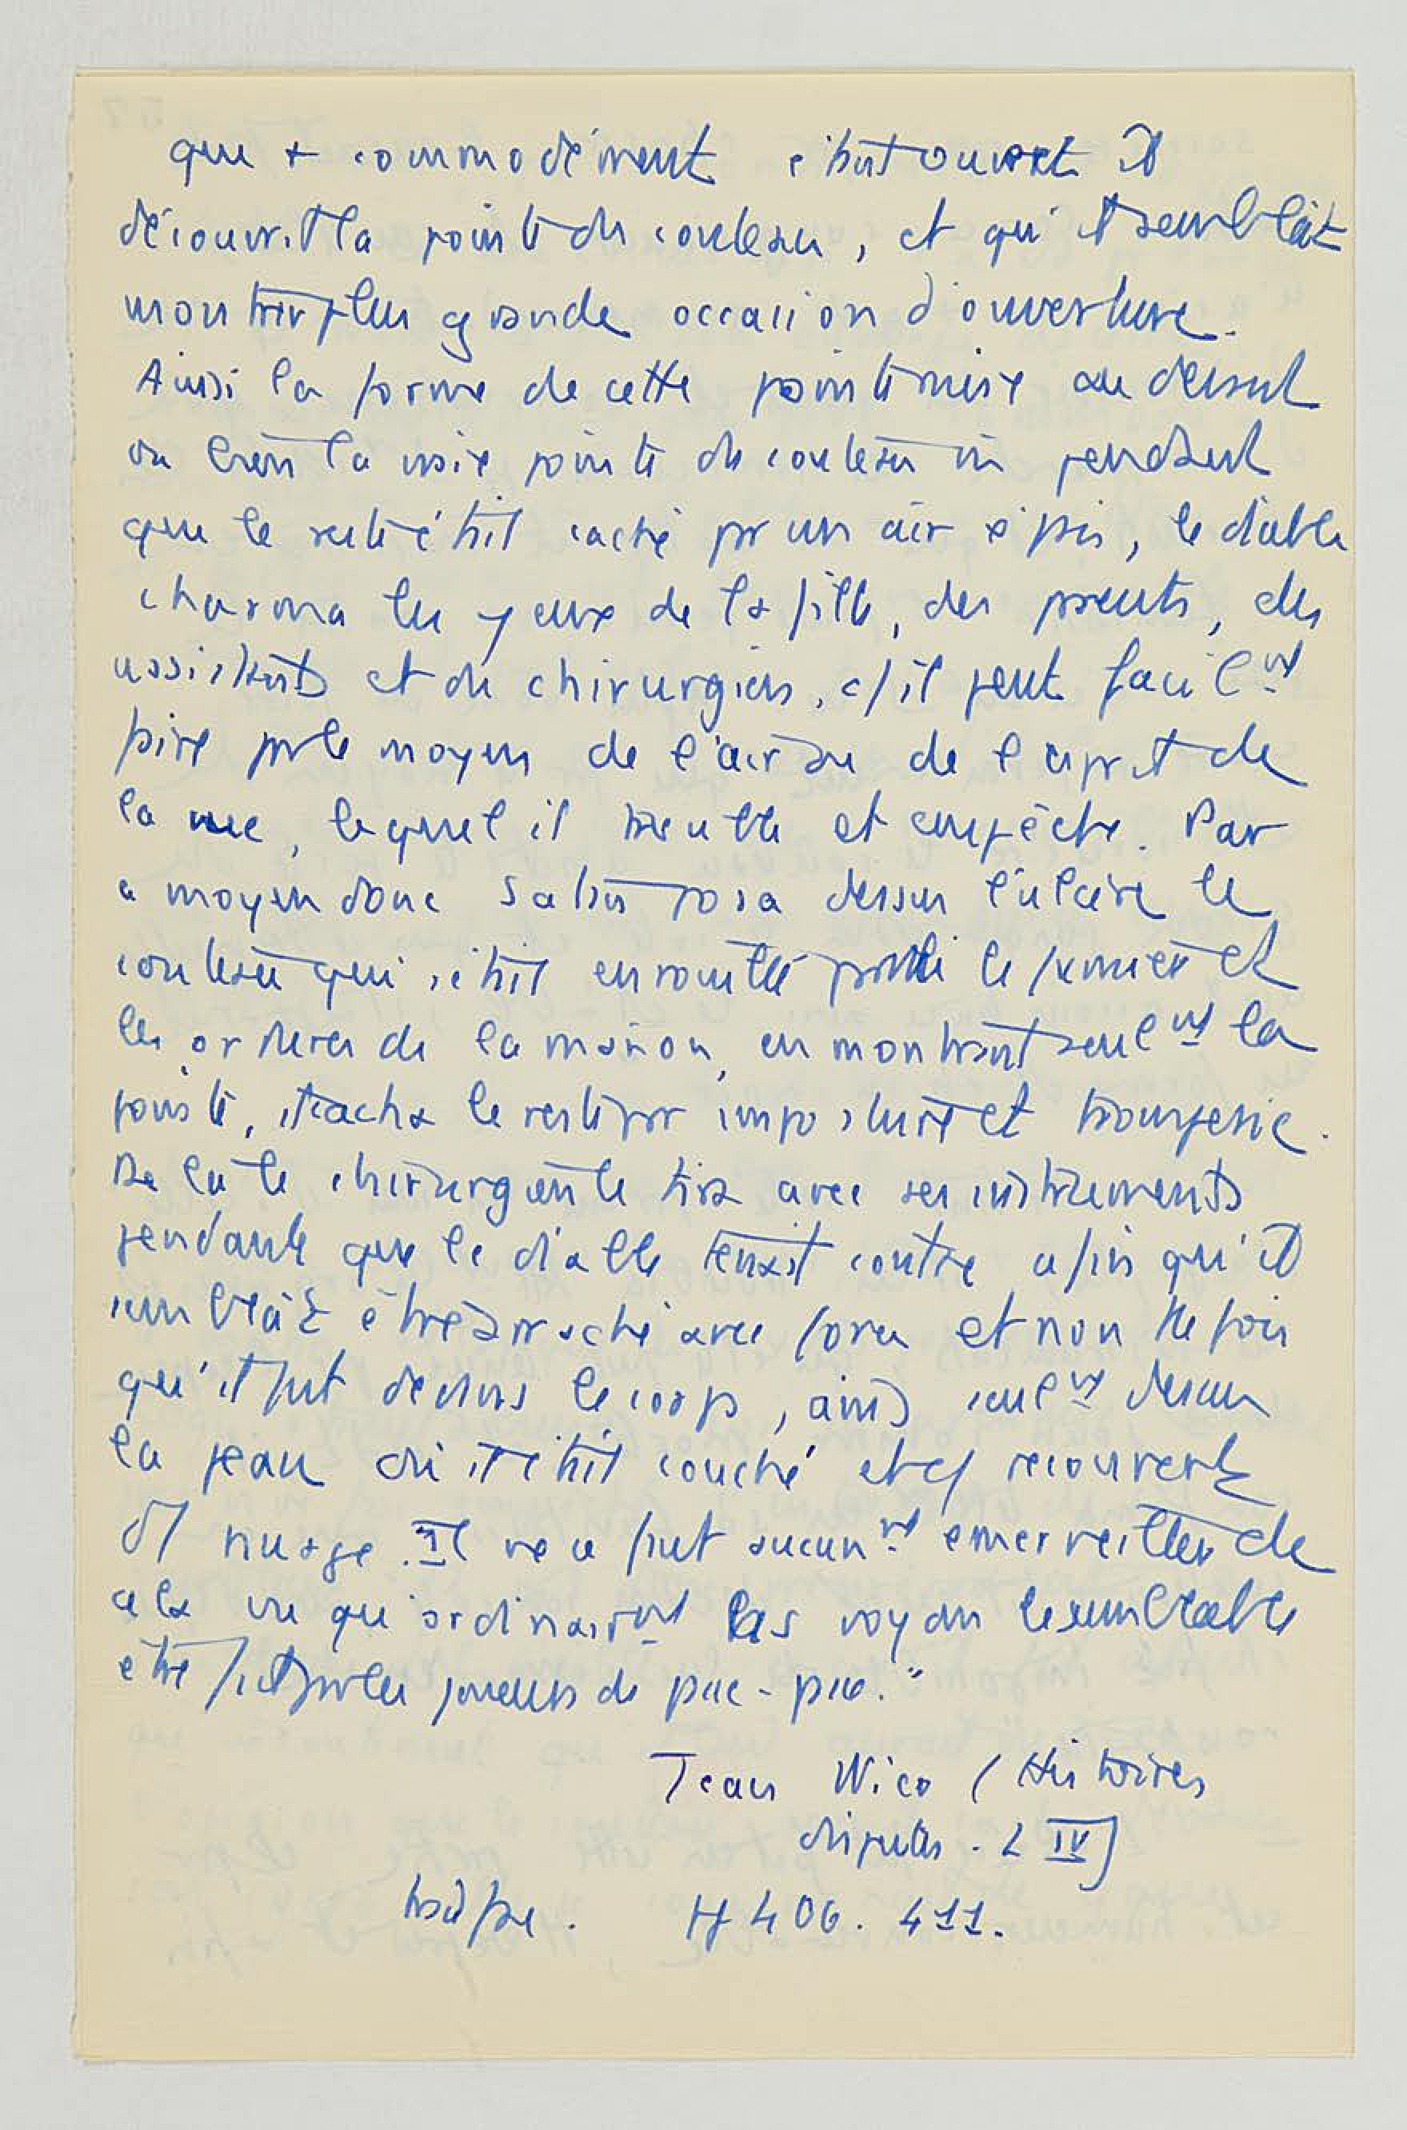 que + commodément s'étant ouverte il
découvrit la pointe du couteau, et qu'il semblât
montrer plus grande occasion d'ouverture.
Ainsi la forme de cette pointe mise au dessus
ou bien la vraie pointe du couteau mis pendant
que le reste était caché par un air épais, le diable
charma les yeux de la fille, des parents, des
assistants et du chirurgien, c/ il peut facilnt
faire par le moyen de l'air ou de l'esprit de
la vue, lequel il trouble et empêche. Par
ce moyen donc Satan posa dessus l'ulcère le
couteau qui s'était enrouillé parmi le fumier et
les ordures de la maison, en montrant seulnt la
pointe, et cacha le reste par imposture et tromperie.
De là le chirurgien le tira avec ses instruments
pendant que le diable tenait contre afin qu'il
semblât être arraché avec force et non pas
qu'il fut dedans le corps, ains seulnt dessus
la peau où il était couché et c/ recouvert
d/ nuage. Il ne se faut aucunnt emerveiller de
cela vu qu'ordinairnt les voyons le semblable
être fait par les joueurs de passe-passe."
Jean Wier (Histoires
disputes. L IV)
H 406. 411.